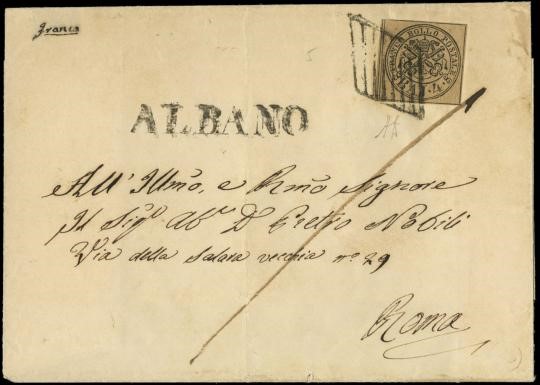 Franca
FRANCO BOLLO POSTALE
ALBANO
All' Illmo, e Rmo Signore
Il Sigr Abe D Pietro Nobili
Via della Salara vecchia no 29
Roma